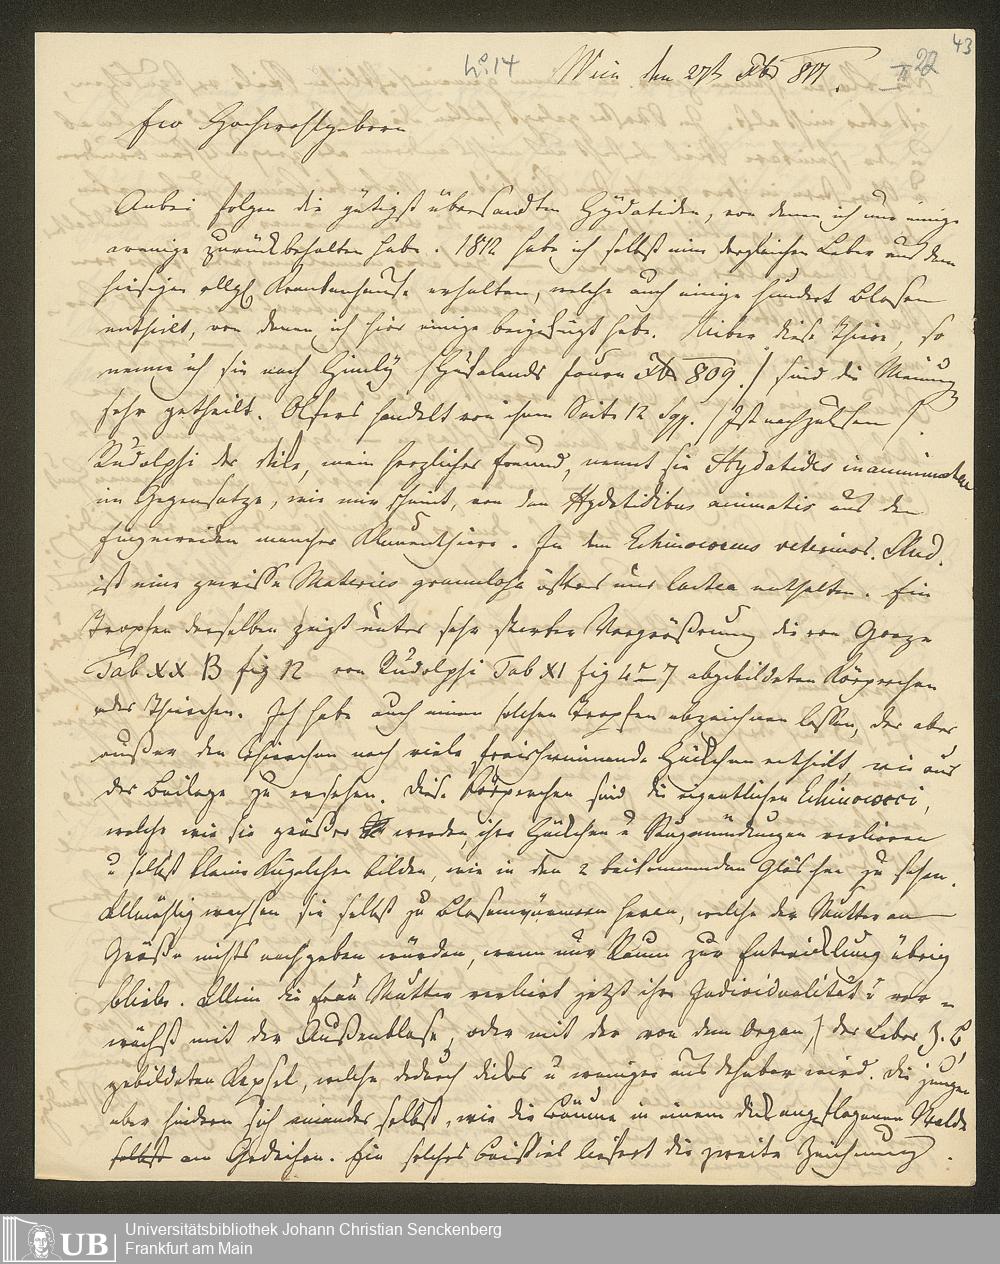 43
No. 14 Wien den 27st Xbr 817. 22
Euer Hochwohlgeborn
Anbei folgen die gütigst übersandten Hydatiden, von denen ich nur einige
wenige zurückbehalten habe. 1812 habe ich selbst eine dergleichen Leber aus dem
hiesigen allg. Krankenhause erhalten, welche auch einige hundert Blasen
enthielt, von denen ich hier einige beigefügt habe. Ueber diese Thiere, so
nenne ich sie nach Himly /Hufelands Journ Xbr 809./ sind die Meinungen
sehr getheilt. Olfers handelt von ihnen Seite 12 sqq. /Ist nachzulesen/.
Rudolphi der edle, mein herzlicher Freund, nennt sie Hydatides inanimatae
im Gegensatze, wie mir scheint, von den Hydatidibus animatis aus den
Eingeweiden mancher Säugthiere. In dem Echinococcus veterinor. Rud.
ist eine gewisse Materies granulosa öfters une lactea enthalten. Ein
Tropfen derselben zeigt unter sehr starker Vergrößerung die von Goeze
Tab XX B fig 12 von Rudolphi Tab XI fig 4–7 abgebildeten Körperchen
oder Thierchen. Ich habe auch einen solchen Tropfen abzeichnen lassen, der aber
außer den Thierchen noch viele freischwimmende Häkchen enthielt, wie aus
der Beilage zu ersehen. Diese Körperchen sind die eigentlichen Echinococci,
welche wie sie größer werden, ihre Häkchen u Saugmündungen verlieren
u selbst kleine Kügelchen bilden, wie in den 2 beikommenden Gläschen zu sehen.
Allmählig wachsen sie selbst zu Blasenwürmern heran, welche der Mutter an
Größe nichts nachgeben würden, wenn nur Raum zur Entwicklung übrig
bliebe. Allein die Frau Mutter verliert jetzt ihre Individualität u ver-
wächst mit der Außenblase, oder mit der von dem Organ, / der Leber z. B
gebildeten Kapsel, welche dadurch dicker u weniger ausdehnbar wird. Die jungen
aber hindern sich einander selbst, wie die Bäume in einem dick angeflogenen Walde
selbst am Gedeihen. Ein solches Beispiel liefert die zweite Zeichnung.
UB
Universitätsbibliothek Johann Christian Senckenberg
Frankfurt am Main